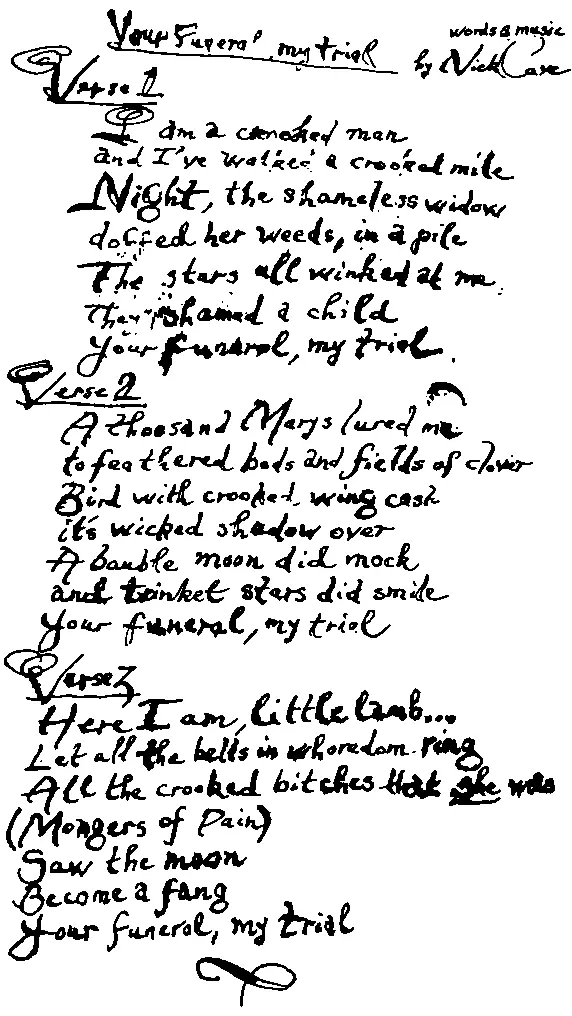 Your Funeral, my trial
words & music
by Nick Cave
Verse 1
I am a crooked man
and I've walked a crooked mile
Night, the shameless widow
doffed her weeds, in a pile
The stars all winked at me
They shamed a child
Your funeral, my trial.
Verse 2
A thousand Marys lured me
to feathered beds and fields of clover
Bird with crooked wing cast
it's wicked shadow over
A bauble moon did mock
and trinket stars did smile
Your funeral, my trial
Verse 3
Here I am, little lamb...
Let all the bells in whoredom ring
All the crooked bitches that she was
(Mongers of Pain)
Saw the moon
Become a fang
Your funeral, my trial